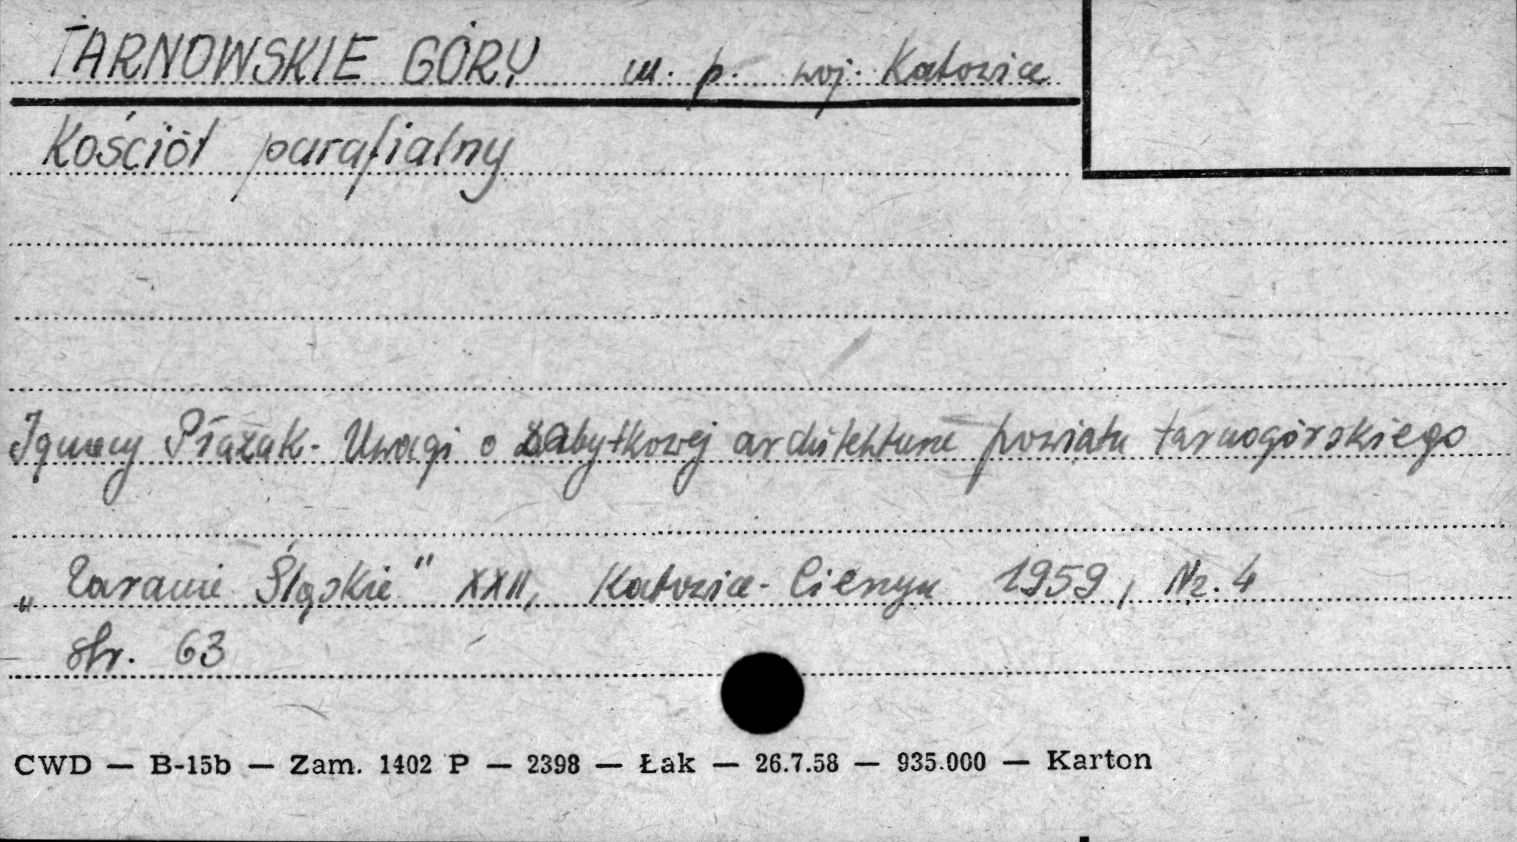 TARNOWSKIE GÓRY m. p. woj. Katowice
Kościół parafialny
Ignacy Płazak - Uwagi o zabytkowej architekturze powiatu tarnogórskiego
„Zaranie Śląskie" XXII, Katowice - Cieszyn 1959, Nr. 4
str. 63
CWD — B-15b — Zam. 1402 P — 2398 — Łak — 26.7.58 — 935.000 — Karton